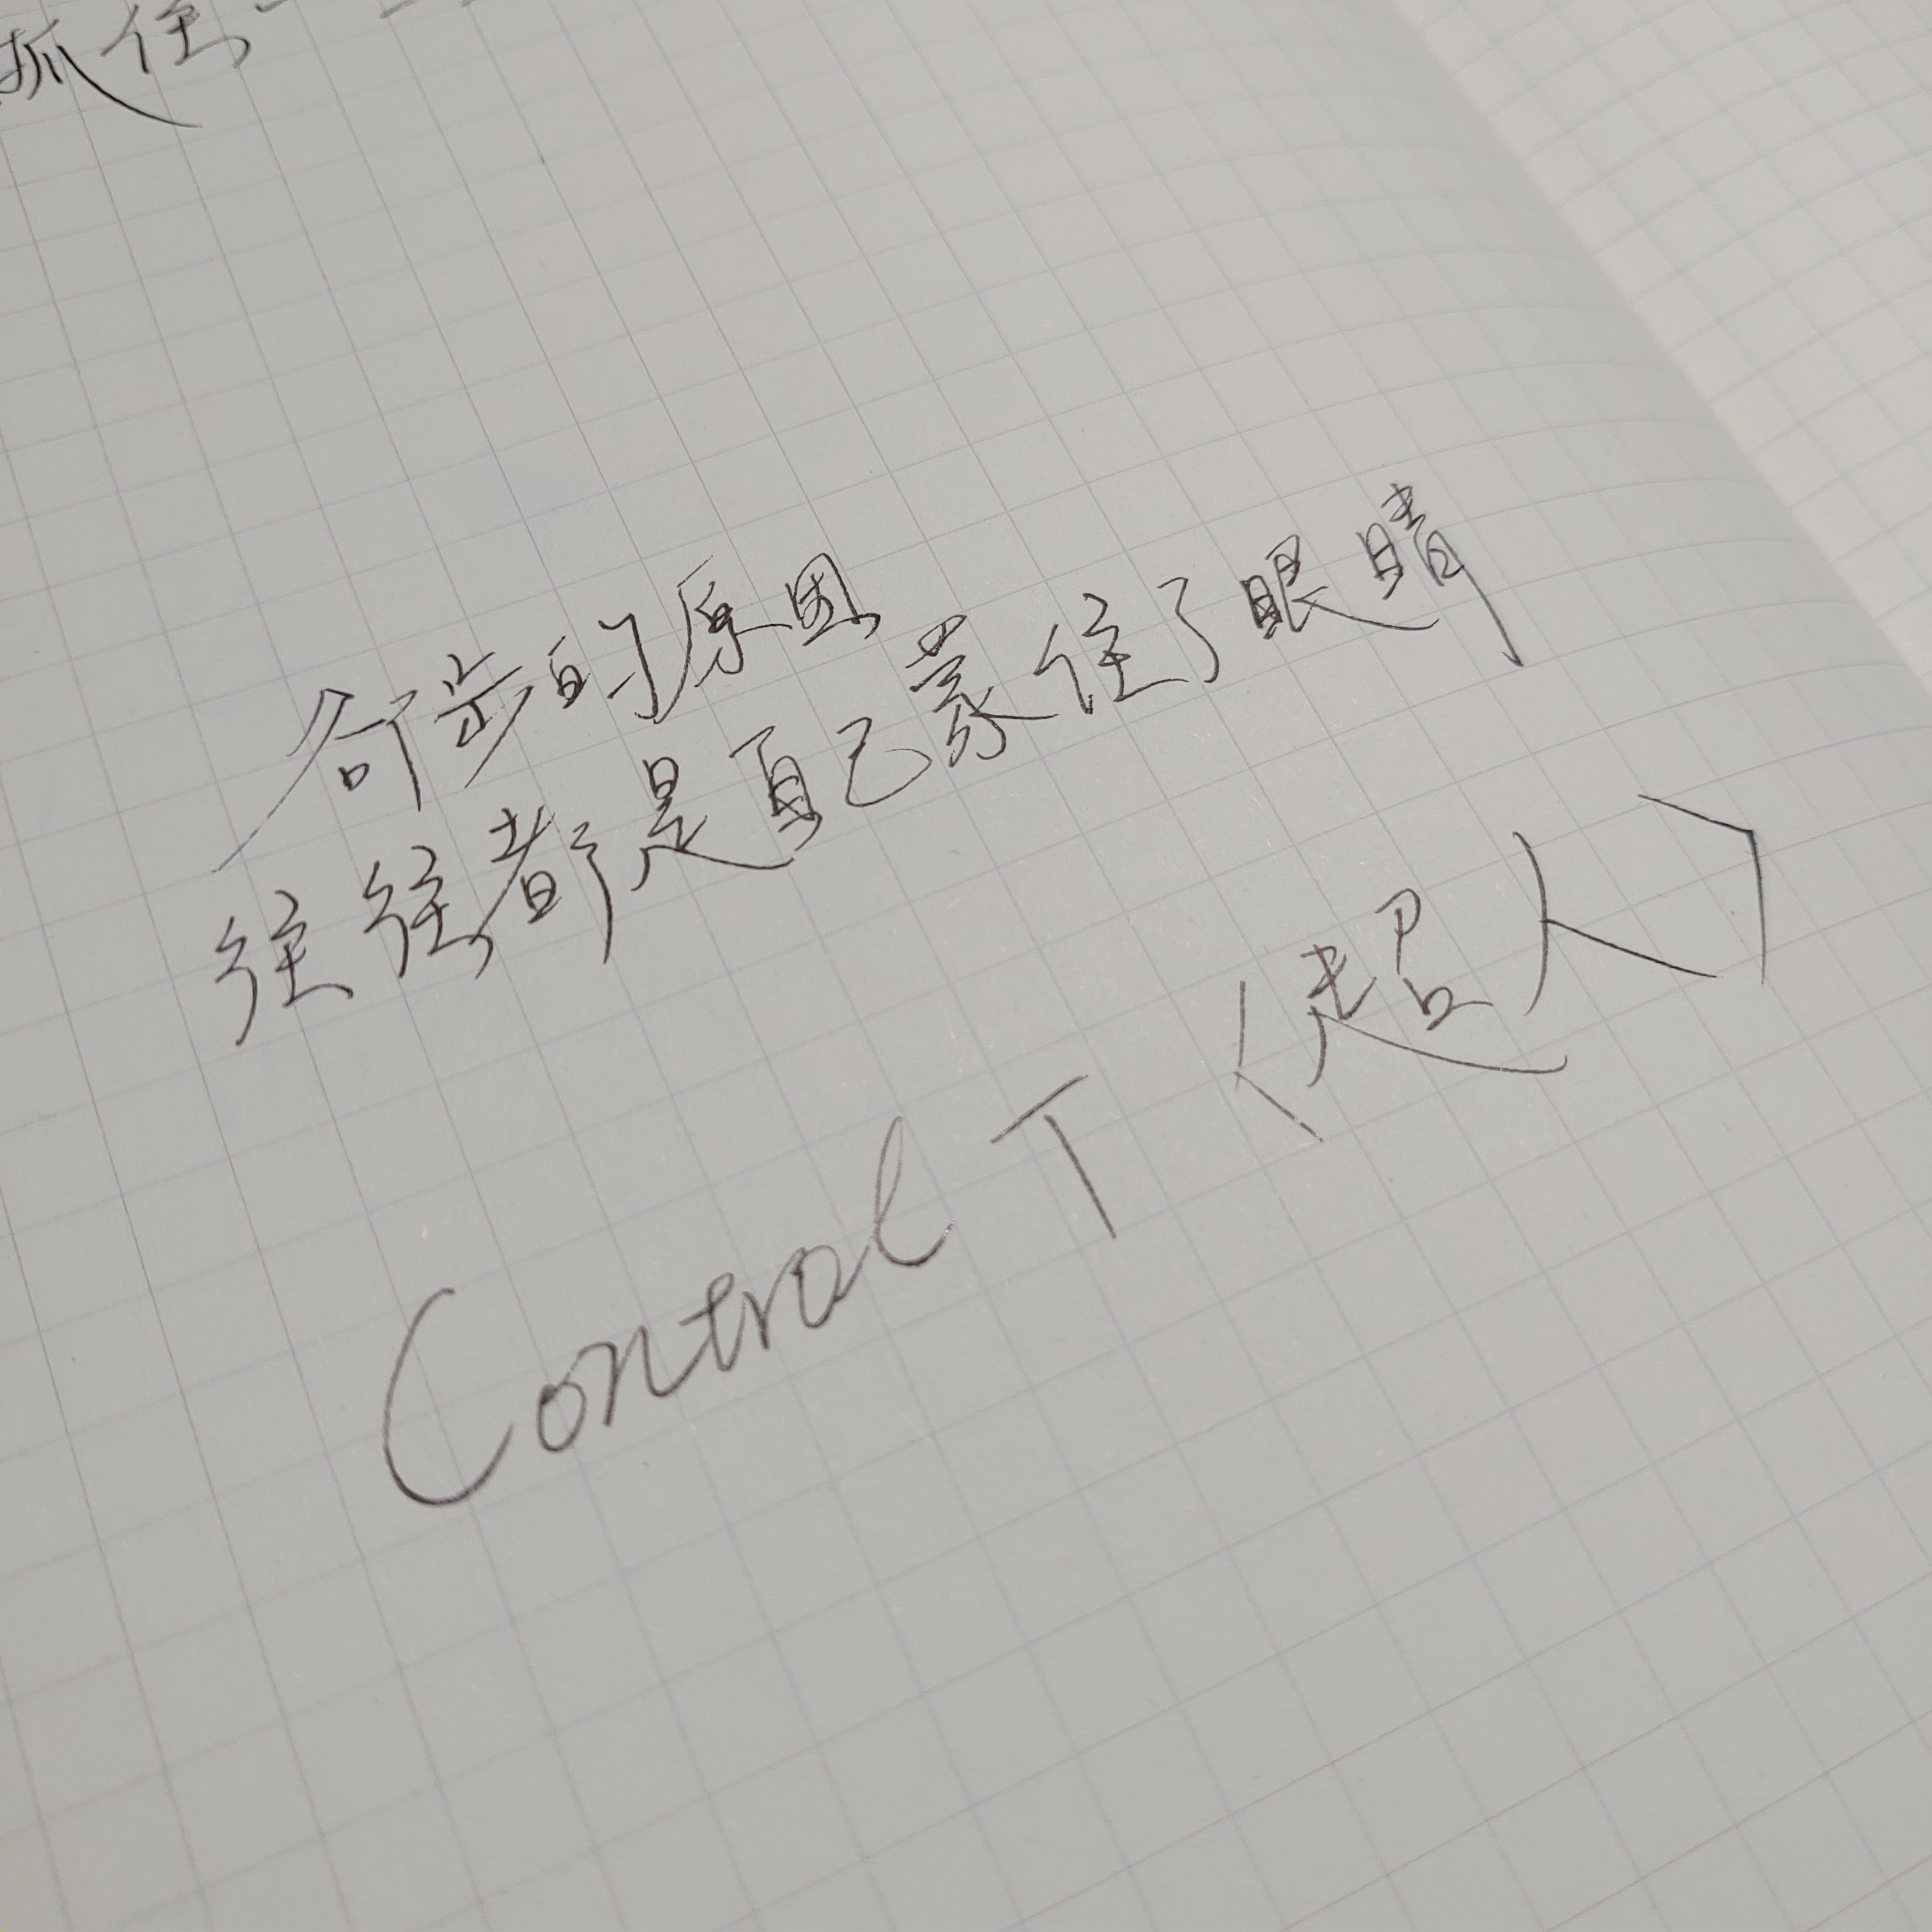 抓住
步的原因
往往都是自己蒙住了眼睛
Control T 〈超人〉